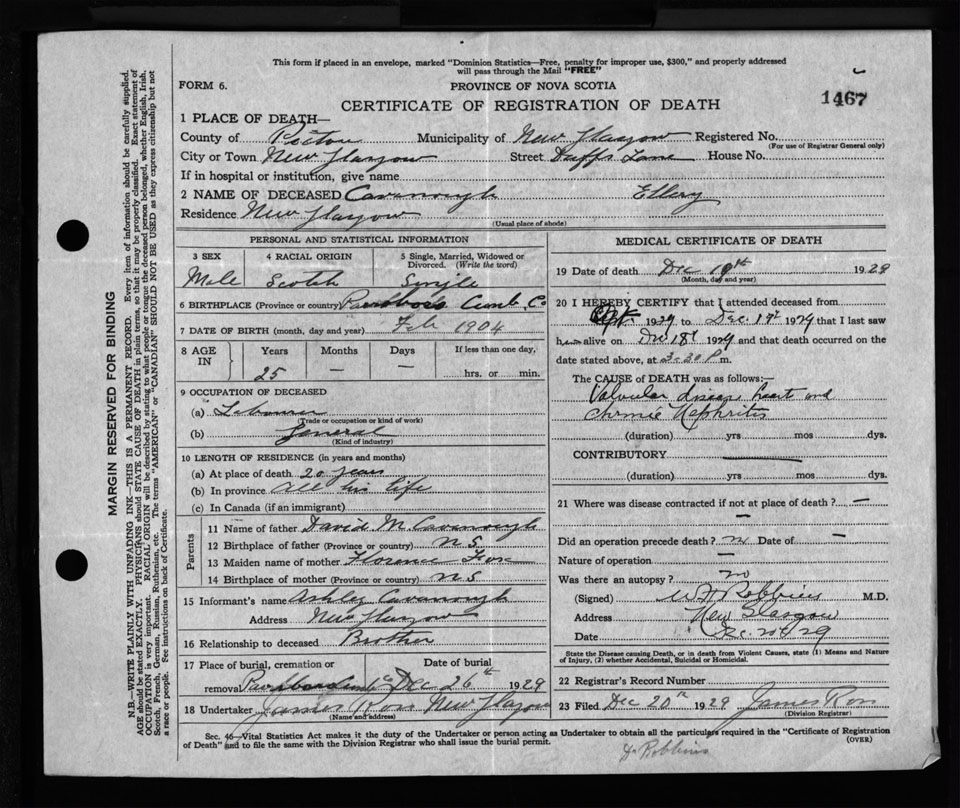 This form if placed in an envelope, marked "Dominion Statistics—Free, penalty for improper use, $300," and properly addressed
will pass through the Mail "FREE"
FORM 6.
PROVINCE OF NOVA SCOTIA
CERTIFICATE OF REGISTRATION OF DEATH
1467
1 PLACE OF DEATH—
County of Pictou Municipality of New Glasgow Registered No.
(For use of Registrar General only)
City or Town New Glasgow Street Duffs Lane House No.
If in hospital or institution, give name
2 NAME OF DECEASED Cavanough Ellery
Residence New Glasgow
(Usual place of abode)
PERSONAL AND STATISTICAL INFORMATION
3 SEX 4 RACIAL ORIGIN 5 Single, Married, Widowed or Divorced. (Write the word)
Male Scotch Single
6 BIRTHPLACE (Province or country) Parrsboro Cumb. Co
7 DATE OF BIRTH (month, day and year) Feb 1904
8 AGE IN Years Months Days If less than one day,
25 — — hrs. or min.
9 OCCUPATION OF DECEASED
(a) Labourer
(Trade or occupation or kind of work)
(b) General
(Kind of industry)
10 LENGTH OF RESIDENCE (in years and months)
(a) At place of death 20 years
(b) In province All his life
(c) In Canada (if an immigrant)
Parents
11 Name of father David M. Cavanough
12 Birthplace of father (Province or country) N S
13 Maiden name of mother Florence
14 Birthplace of mother (Province or country) N S
15 Informant's name Ashley Cavanough
Address New Glasgow
16 Relationship to deceased Brother
17 Place of burial, cremation or removal Date of burial
Dec 26th 1929
18 Undertaker James Ross New Glasgow
(Name and address)
MEDICAL CERTIFICATE OF DEATH
19 Date of death Dec 19th 1929
(Month, day and year)
20 I HEREBY CERTIFY that I attended deceased from
1929 to Dec. 19th 1929 that I last saw
him alive on Dec 18th 1929 and that death occurred on the
date stated above, at 3-30 P m.
The CAUSE of DEATH was as follows:—
Valvular disease heart and
Chronic Nephritis
(duration) yrs mos dys.
CONTRIBUTORY
(duration) yrs mos dys.
21 Where was disease contracted if not at place of death? —
—
Did an operation precede death? no Date of —
Nature of operation —
Was there an autopsy? no
(Signed) W H Robbins M.D.
Address New Glasgow
Date Dec. 20th/29
State the Disease causing Death, or in death from Violent Causes, state (1) Means and Nature
of Injury, (2) whether Accidental, Suicidal or Homicidal.
22 Registrar's Record Number
23 Filed Dec 20th 1929 James Ross
(Division Registrar)
Sec. 46—Vital Statistics Act makes it the duty of the Undertaker or person acting as Undertaker to obtain all the particulars required in the "Certificate of Registration
of Death" and to file the same with the Division Registrar who shall issue the burial permit.
(OVER)
Dr Robbins
MARGIN RESERVED FOR BINDING
N.B.—WRITE PLAINLY WITH UNFADING INK—THIS IS A PERMANENT RECORD. Every item of information should be carefully supplied.
AGE should be stated EXACTLY. PHYSICIANS should STATE CAUSE OF DEATH in plain terms, so that it may be properly classified. Exact statement of
OCCUPATION is very important. RACIAL ORIGIN will be described by stating to what people or tongue the deceased person belonged, whether English, Irish,
Scotch, French, German, Russian, Ruthenian, etc. The terms "AMERICAN" or "CANADIAN" SHOULD NOT BE USED as they express citizenship but not
a race or people. See instructions on back of Certificate.